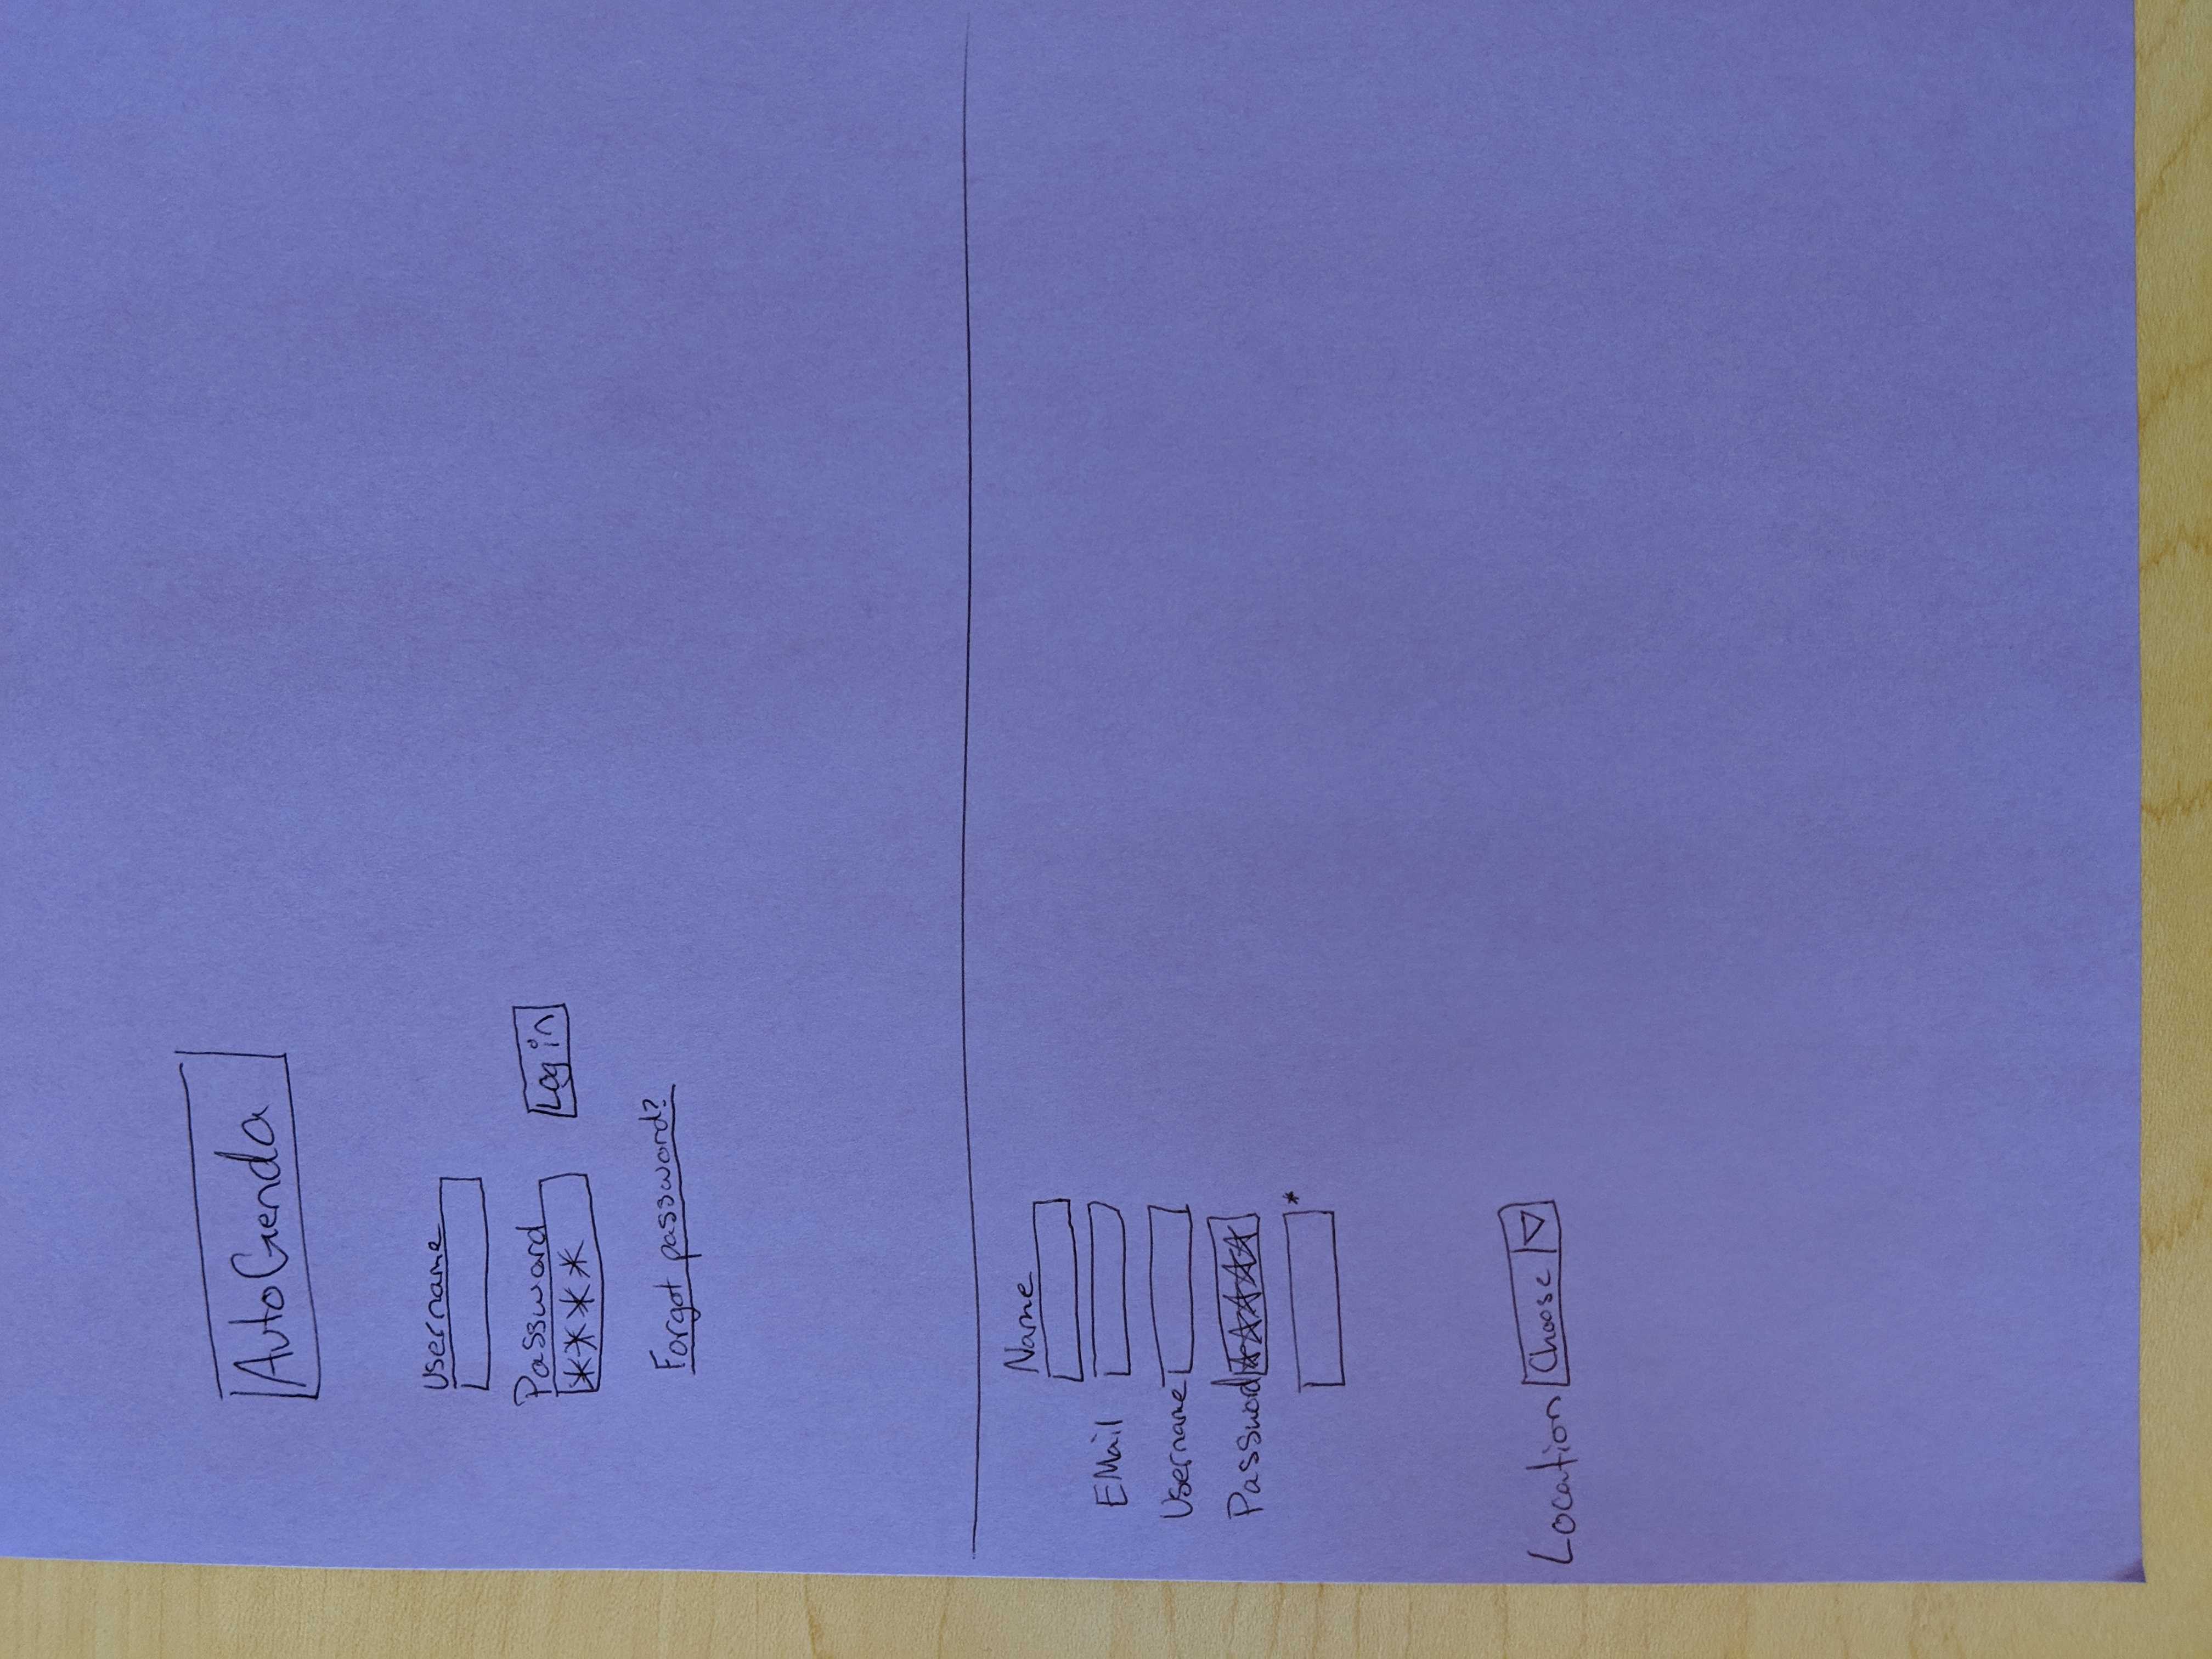 AutoGenda
Username
Password
**** Log in
Forgot password?
Name
EMail
Username
Password *****
*
Location Choose